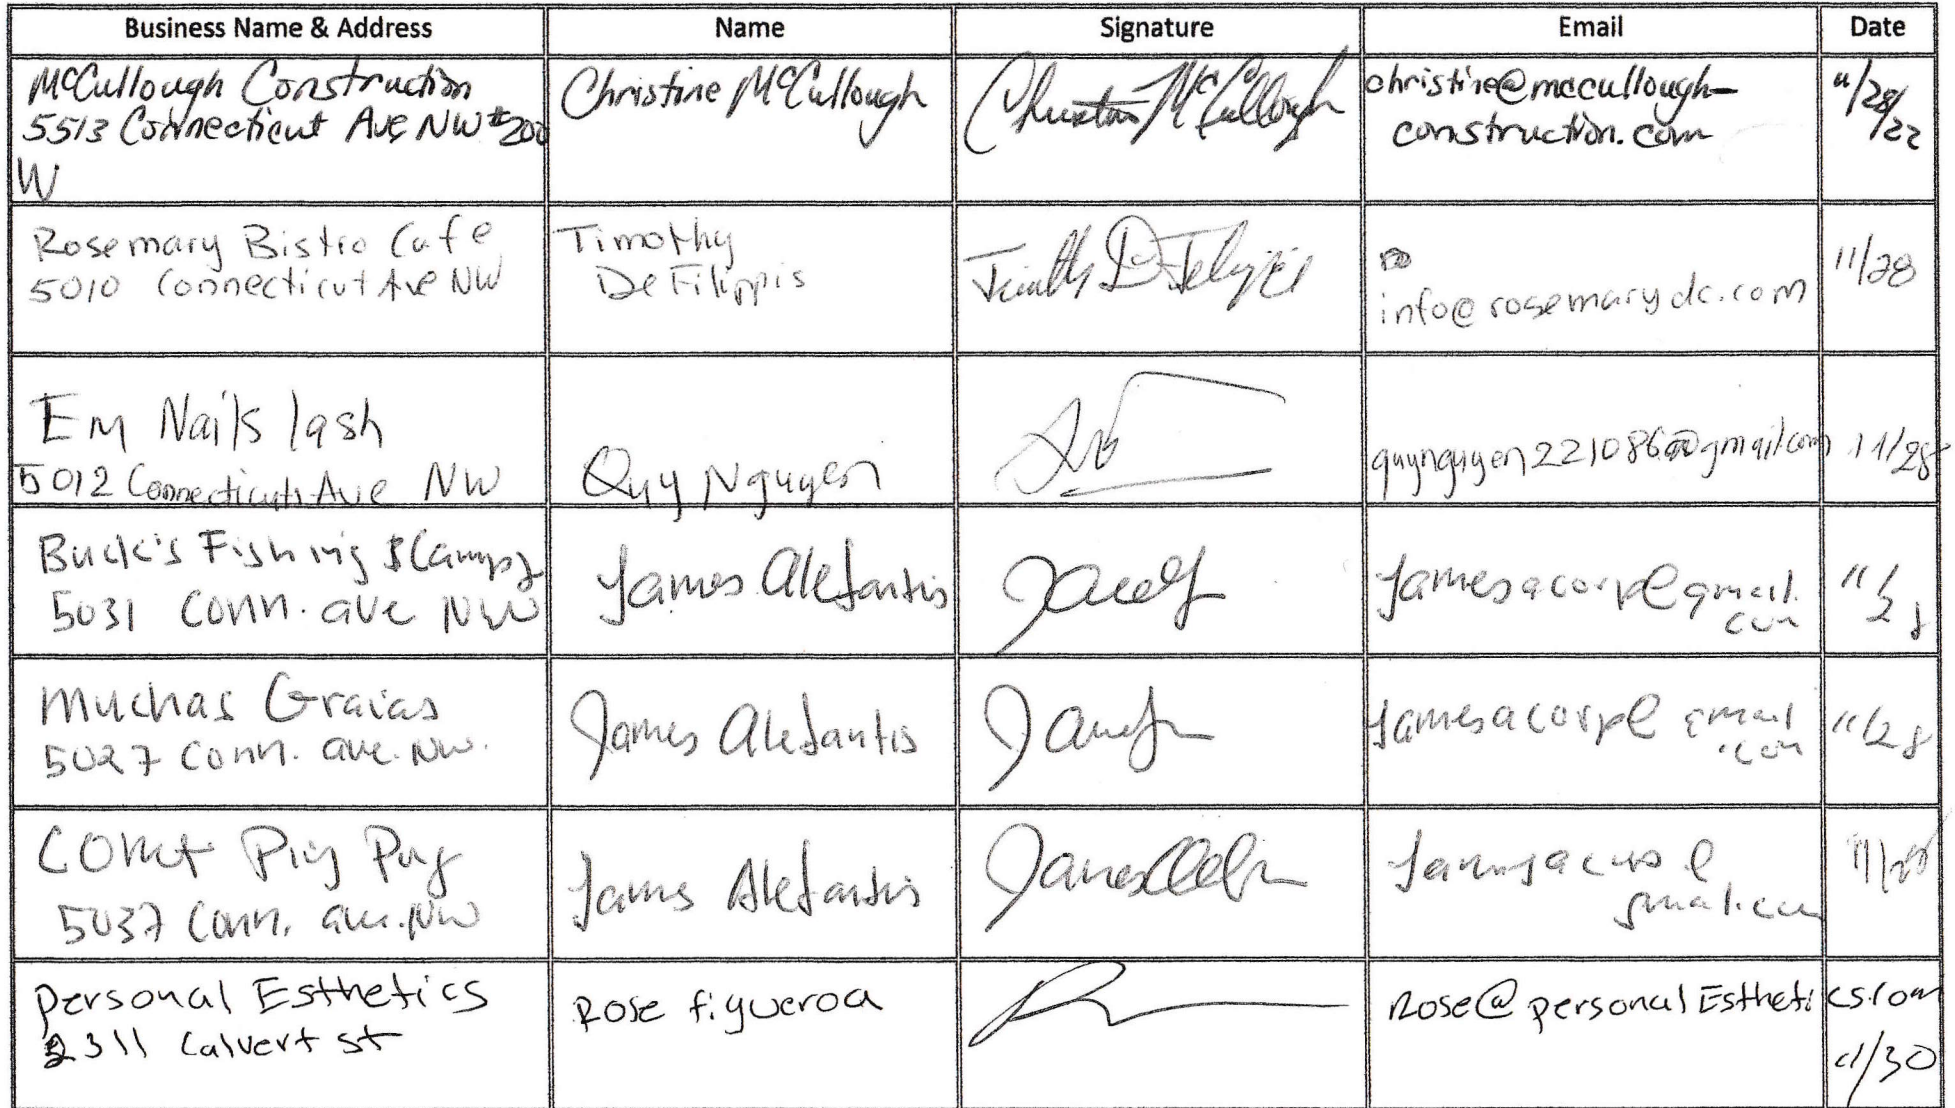 Business Name & Address Name Signature Email Date
McCullough Construction
5513 Connecticut Ave NW #200
W
Christine McCullough
Christine McCullough
christine@mccullough-
construction.com
11/28/22
Rosemary Bistro Cafe
5010 Connecticut Ave NW
Timothy
DeFilippis
info@rosemarydc.com
11/28
Em Nails lash
5012 Connecticut Ave NW
Quy Nguyen
quynguyen221086@gmail.com
11/28
Buck's Fishing & Camping
5031 Conn. ave NW
James Alefantis
jamesacorp@gmail.
com
11/28
Muchas Graias
5027 Conn. ave. NW.
James Alefantis
jamesacorp@gmail
.com
11/28
Comet Ping Pong
5037 Conn. ave. NW
James Alefantis
11/28
Personal Esthetics
2311 Calvert st
Rose figueroa
Rose@personalEsthetics.com
11/30